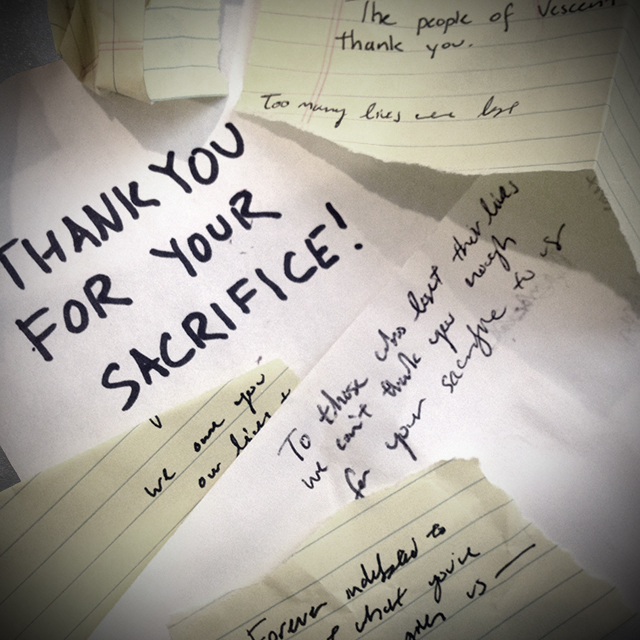 The people of
thank you.
Too many lives were lost
THANK YOU
FOR YOUR
SACRIFICE!
To those who lost their lives
we can't thank you enough
for your sacrifice to us
we owe you
our lives
Forever indebted to
what you've
us —